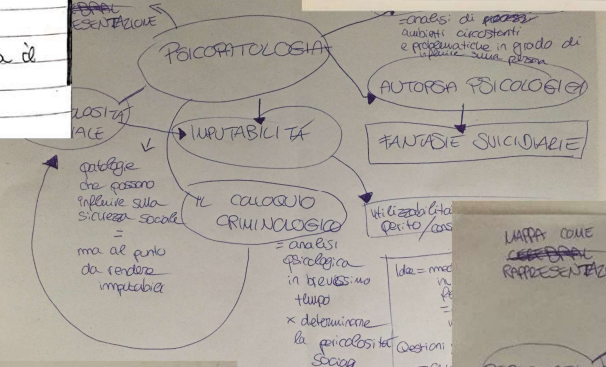 RAPPRESENTAZIONE
a è
PSICOPATOLOGIA
= analisi di
ambienti circostanti
e problematiche in grado di
influire sulla persona
AUTOPSIA PSICOLOGICA
FANTASIE SUICIDIARIE
IMPUTABILITÁ
patologie
che possano
influire sulla
sicurezza sociale
=
ma al punto
da rendere
imputabile
IL COLLOQUIO
CRIMINOLOGICO
= analisi
psicologica
in brevissimo
tempo
x determinarne
la pericolosità
sociale
utilizzabilità
perito / cons
Idee = mod
in
=
Questioni
MAPPA COME
CEREBRAL
RAPPRESENTAZ